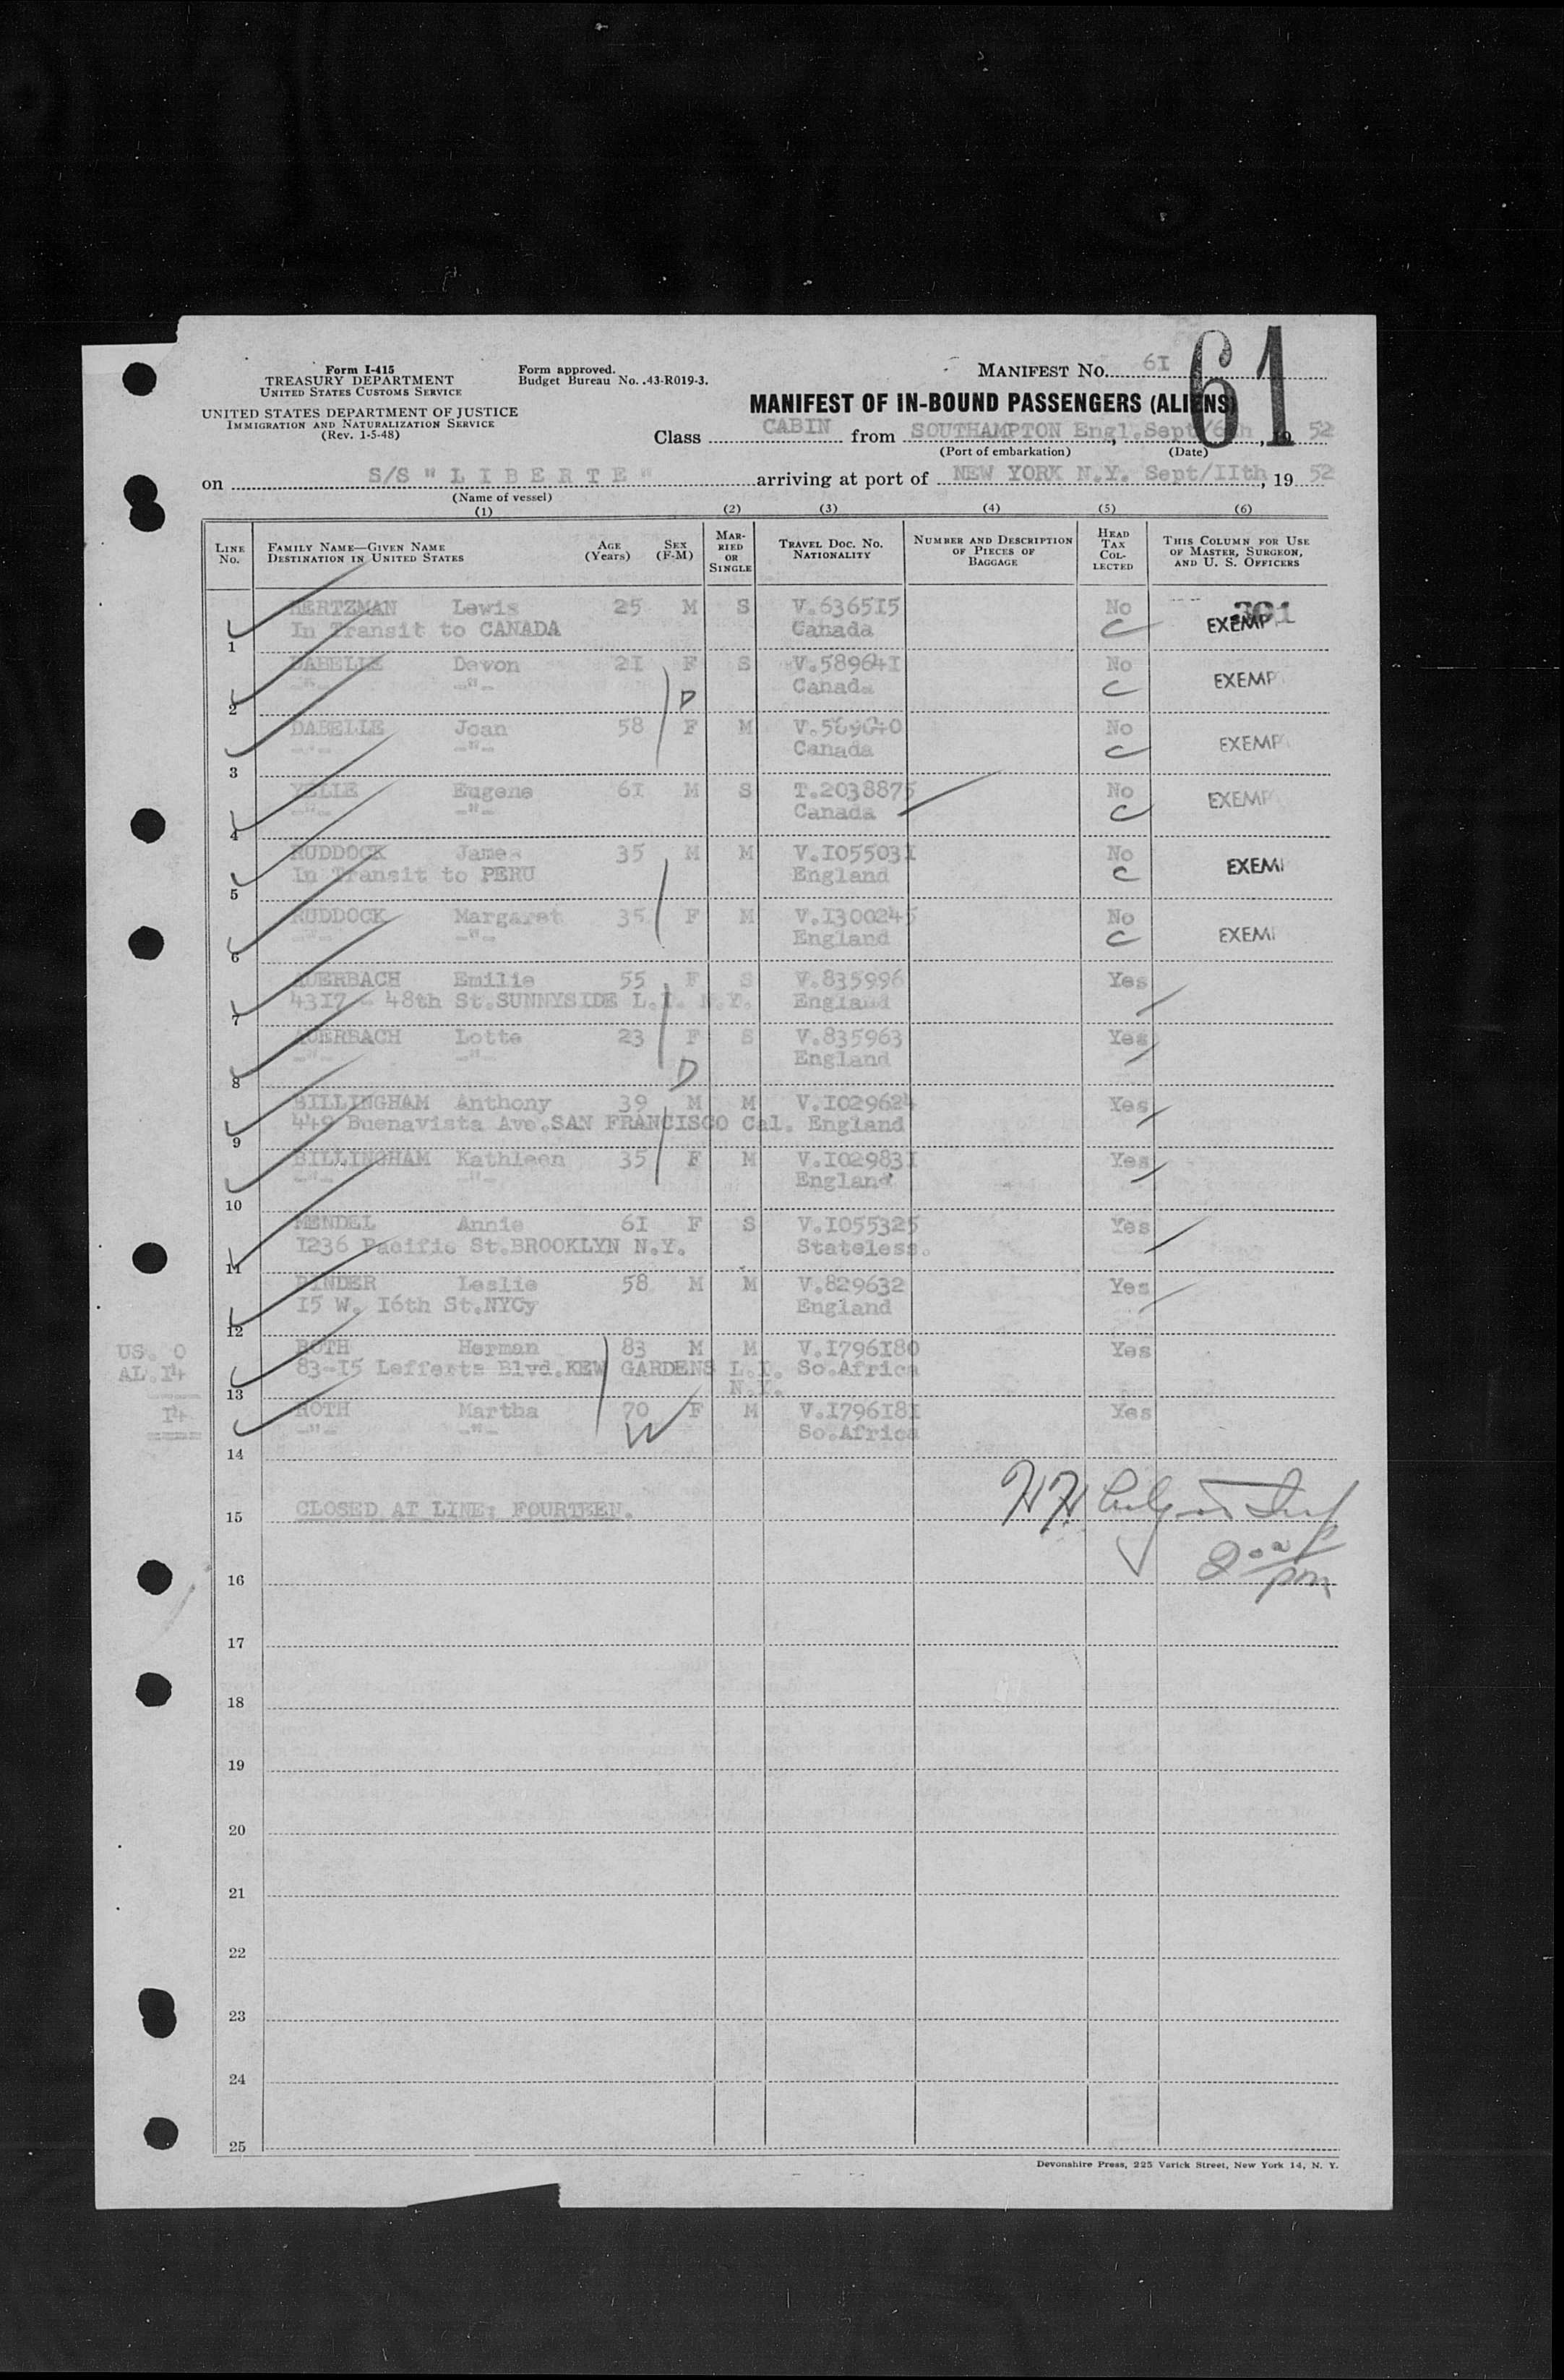 Form I-415
TREASURY DEPARTMENT
UNITED STATES CUSTOMS SERVICE
UNITED STATES DEPARTMENT OF JUSTICE
IMMIGRATION AND NATURALIZATION SERVICE
(Rev. 1-5-48)
Form approved.
Budget Bureau No. .43-R019-3.
MANIFEST NO. 6I
61
MANIFEST OF IN-BOUND PASSENGERS (ALIENS)
Class CABIN from SOUTHAMPTON Engl. Sept/6th, 19 52
(Port of embarkation) (Date)
on S/S "LIBERTE" arriving at port of NEW YORK N.Y. Sept/IIth, 19 52
(Name of vessel)
(1) (2) (3) (4) (5) (6)
LINE NO.
FAMILY NAME—GIVEN NAME
DESTINATION IN UNITED STATES
AGE (Years)
SEX (F-M)
MARRIED OR SINGLE
TRAVEL DOC. NO. NATIONALITY
NUMBER AND DESCRIPTION OF PIECES OF BAGGAGE
HEAD TAX COLLECTED
THIS COLUMN FOR USE OF MASTER, SURGEON, AND U. S. OFFICERS
HERTZMAN Lewis 25 M S V.6365I5 No 301
1 In Transit to CANADA Canada C EXEMP
DABELLE Devon 2I F S V.58964I No
2 -"- -"- Canada C EXEMP
D
DABELLE Joan 58 F M V.589640 No
3 -"- -"- Canada C EXEMP
YELLE Eugene 6I M S T.2038875 No
4 -"- -"- Canada C EXEMP
RUDDOCK James 35 M M V.I05503I No
5 In Transit to PERU England C EXEM
RUDDOCK Margaret 35 F M V.I300245 No
6 -"- -"- England C EXEM
AUERBACH Emilie 55 F S V.835996 Yes
7 43I7 - 48th St. SUNNYSIDE L.I. N.Y. England
AUERBACH Lotte 23 F S V.835963 Yes
8 -"- -"- England
D
BILLINGHAM Anthony 39 M M V.I029624 Yes
9 449 Buenavista Ave. SAN FRANCISCO Cal. England
BILLINGHAM Kathleen 35 F M V.I02983I Yes
10 -"- -"- England
MENDEL Annie 6I F S V.I055325 Yes
11 I236 Pacific St. BROOKLYN N.Y. Stateless.
BINDER Leslie 58 M M V.829632 Yes
12 I5 W. I6th St. NYCy England
US. 0
AL. I4
I4
ROTH Herman 83 M M V.I796I80 Yes
13 83-I5 Lefferts Blvd. KEW GARDENS L.I. N.Y. So.Africa
ROTH Martha 70 F M V.I796I8I Yes
14 -"- -"- So.Africa
W
15 CLOSED AT LINE: FOURTEEN.
16
17
18
19
20
21
22
23
24
25
Devonshire Press, 225 Varick Street, New York 14, N. Y.